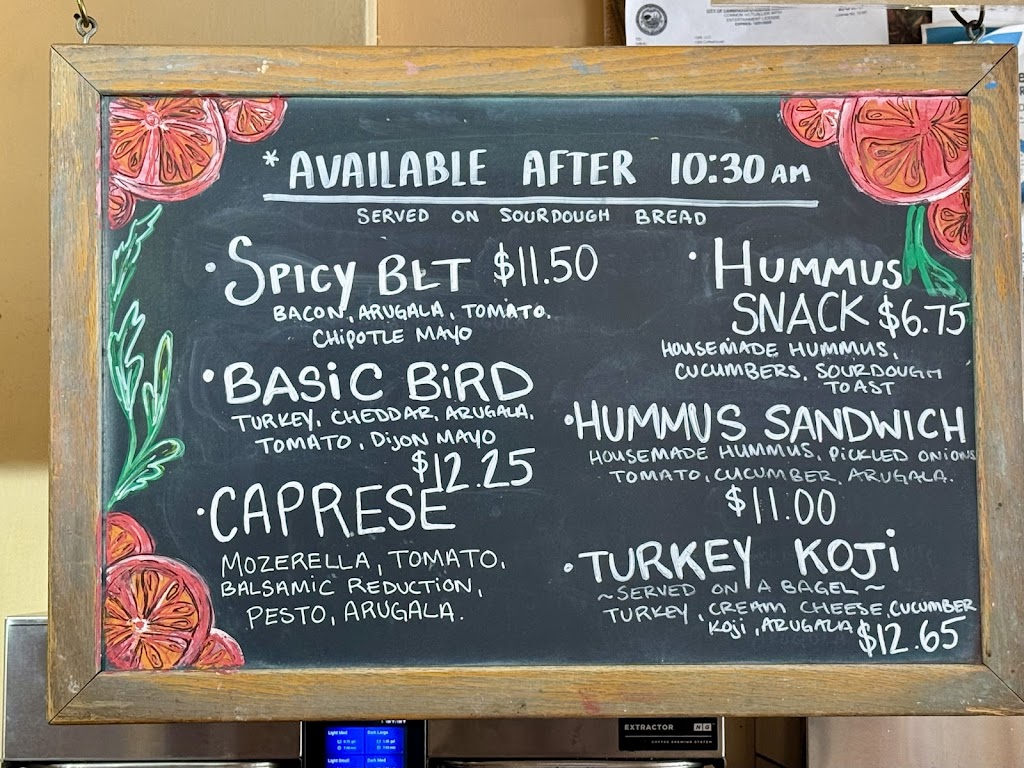 * AVAILABLE AFTER 10:30 AM
SERVED ON SOURDOUGH BREAD
• SPICY BLT $11.50
BACON, ARUGALA, TOMATO.
CHIPOTLE MAYO
• BASIC BIRD
TURKEY, CHEDDAR, ARUGALA,
TOMATO, DIJON MAYO
$12.25
• CAPRESE
MOZERELLA, TOMATO,
BALSAMIC REDUCTION,
PESTO, ARUGALA.
• HUMMUS
SNACK $6.75
HOUSEMADE HUMMUS,
CUCUMBERS, SOURDOUGH
TOAST
• HUMMUS SANDWICH
HOUSEMADE HUMMUS, PICKLED ONIONS
TOMATO, CUCUMBER, ARUGALA.
$11.00
• TURKEY KOJI
~SERVED ON A BAGEL~
TURKEY, CREAM CHEESE, CUCUMBER
KOJI, ARUGALA $12.65
Light Med Dark Large
Light Small Dark Med
EXTRACTOR
COFFEE BREWING SYSTEM